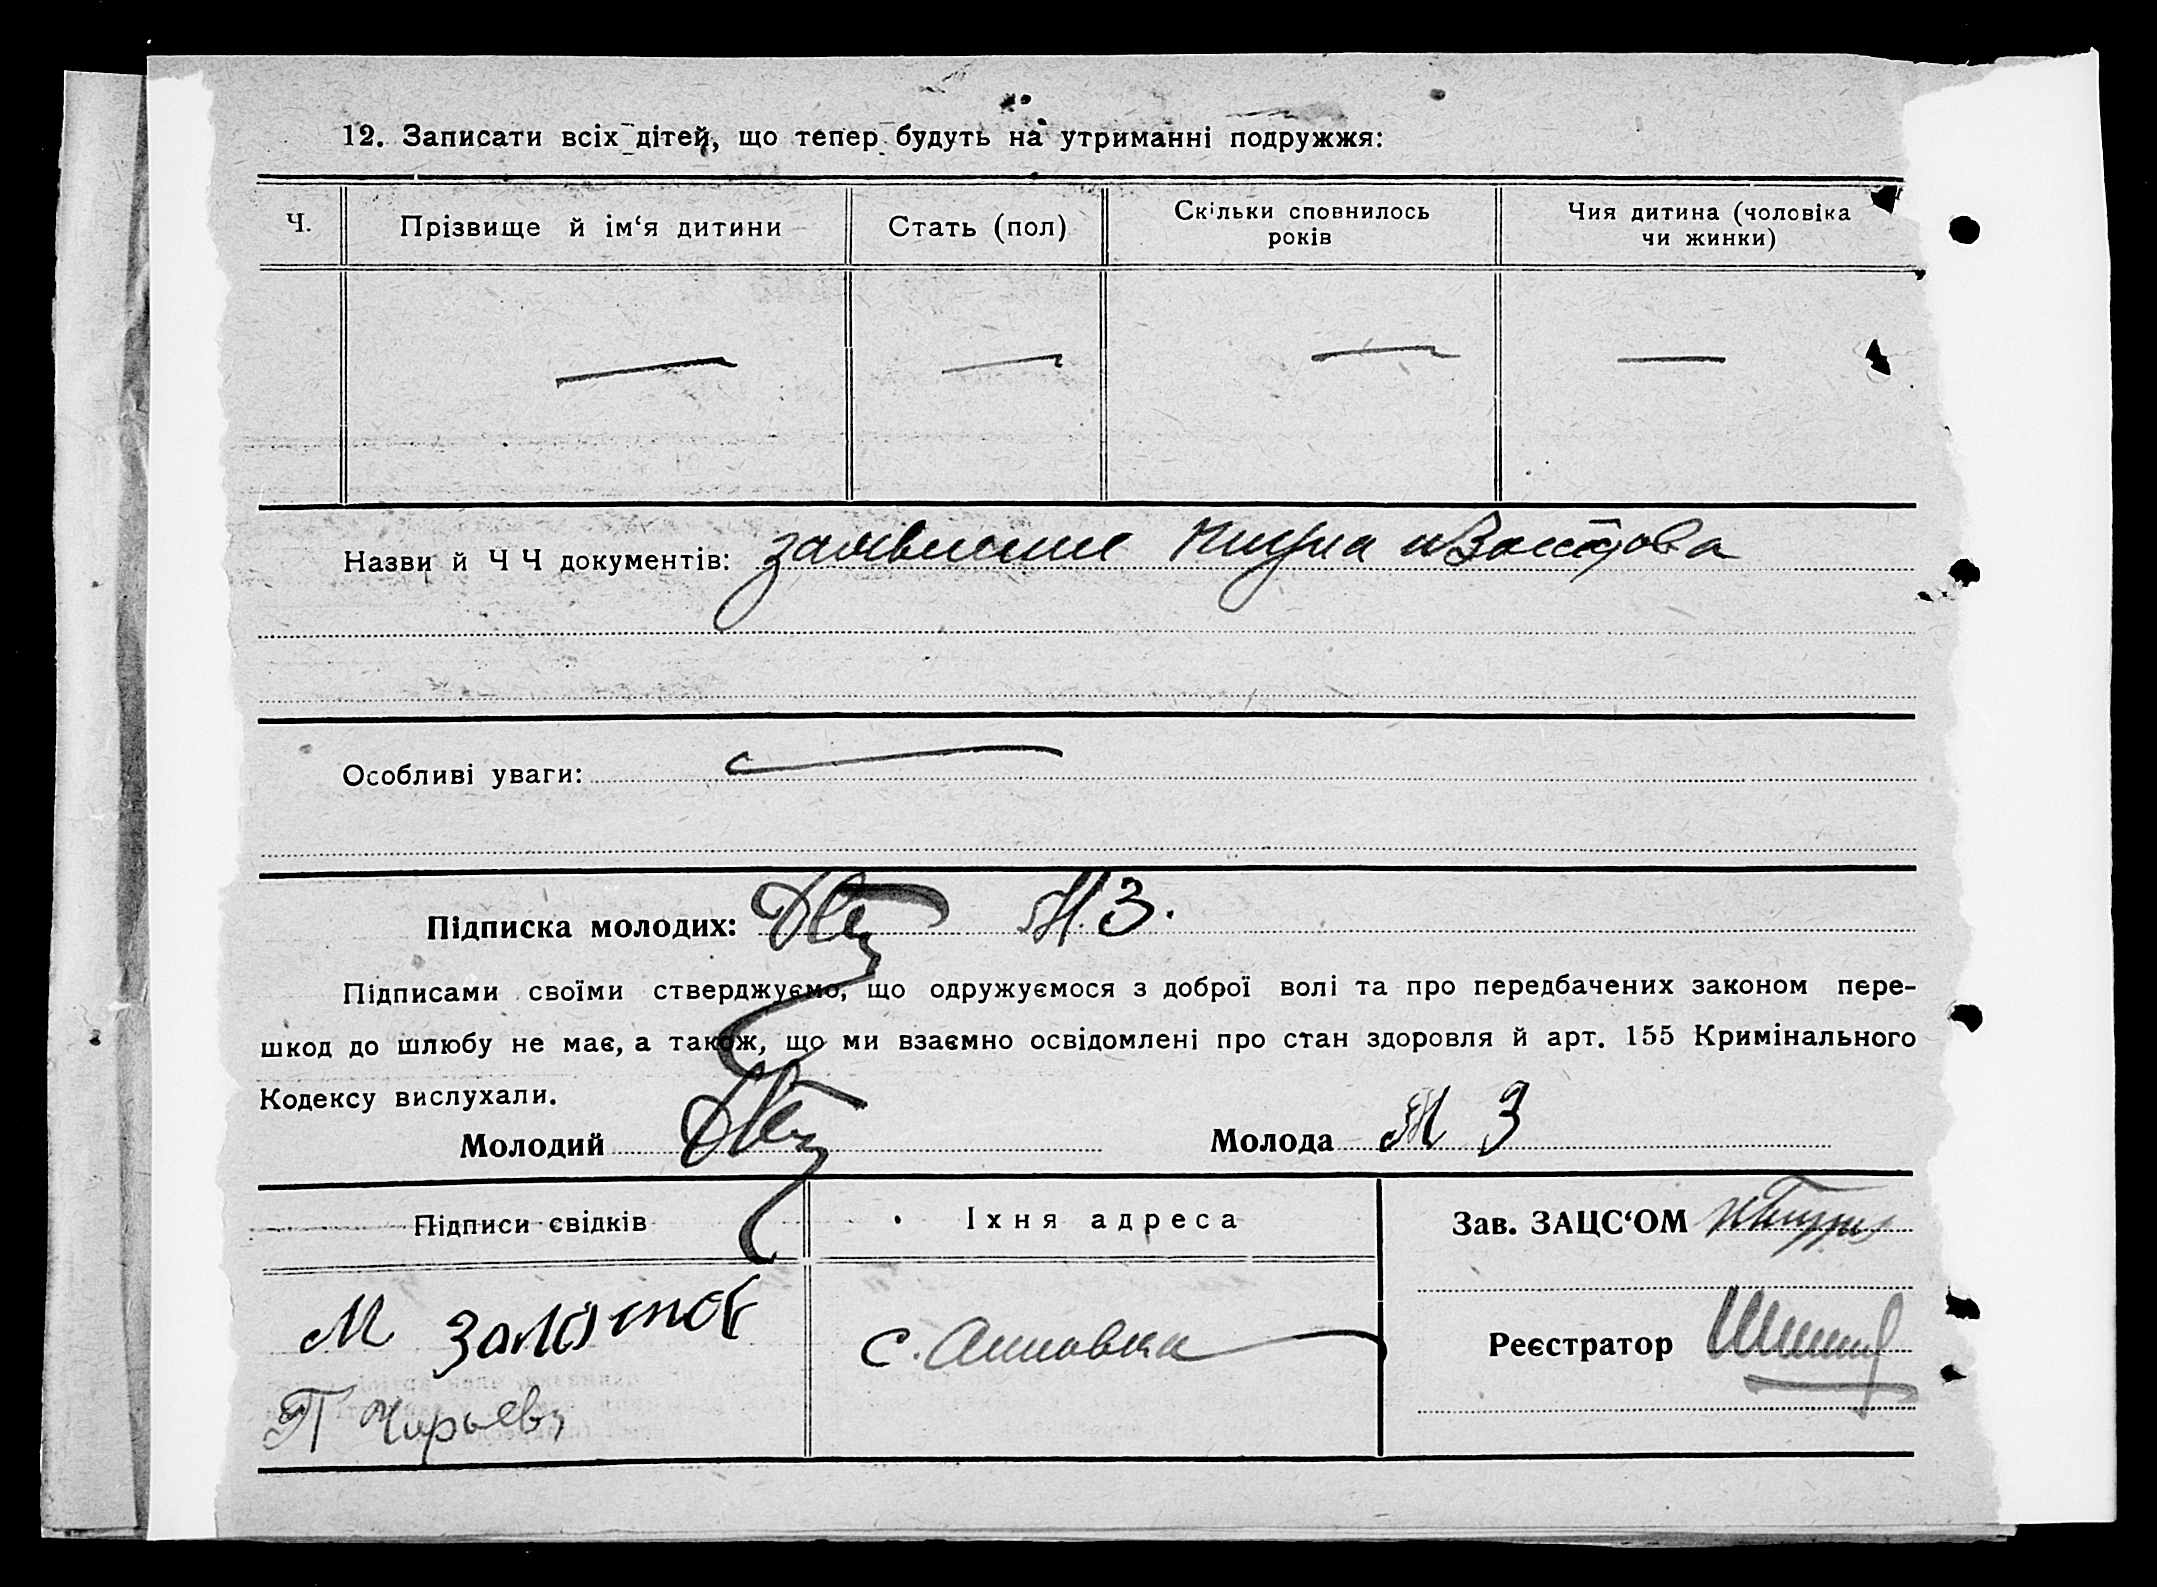 12. Записати всіх дітей, що тепер будуть на утриманні подружжя:
Ч. Прізвище й ім‘я дитини Стать (пол) Скільки сповнилось років Чия дитина (чоловіка чи жинки)
— — — —
Назви й Ч Ч документів: заявление
Особливі уваги: —
Підписка молодих: М З.
Підписами своїми стверджуємо, що одружуємося з доброї волі та про передбачених законом пере-
шкод до шлюбу не має, а також, що ми взаємно освідомлені про стан здоровля й арт. 155 Кримінального
Кодексу вислухали.
Молодий Молода М З
Підписи євідків Їхня адреса Зав. ЗАЦС‘ОМ
М Золотов с. Анновка Реєстратор
П